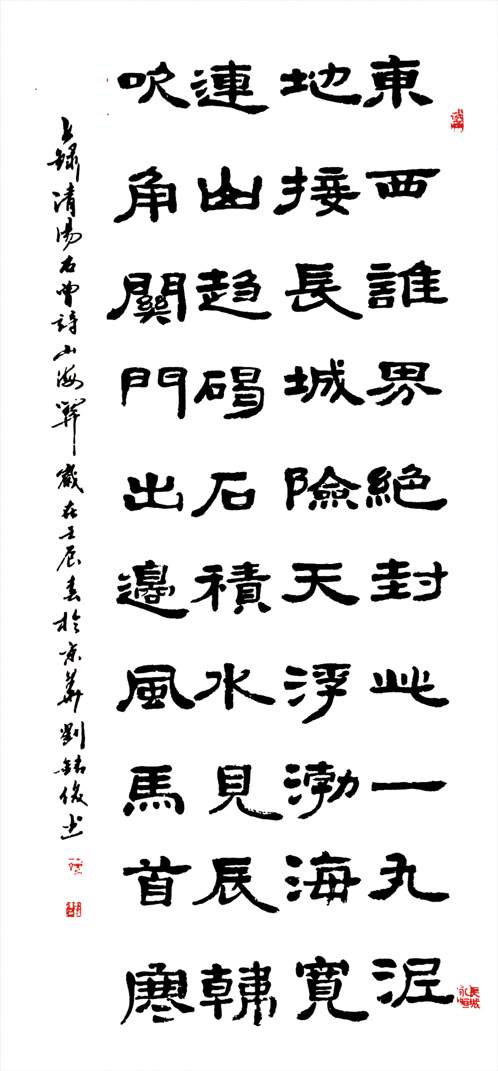 東西誰界絕封此一丸泥
地接長城險天浮渤海寬
連山趍碣石積水見辰韓
吹角關門出邊風馬首寒
上錄清湯右曾詩山海關歲在壬辰春於京華劉銘俊书
長城永恒